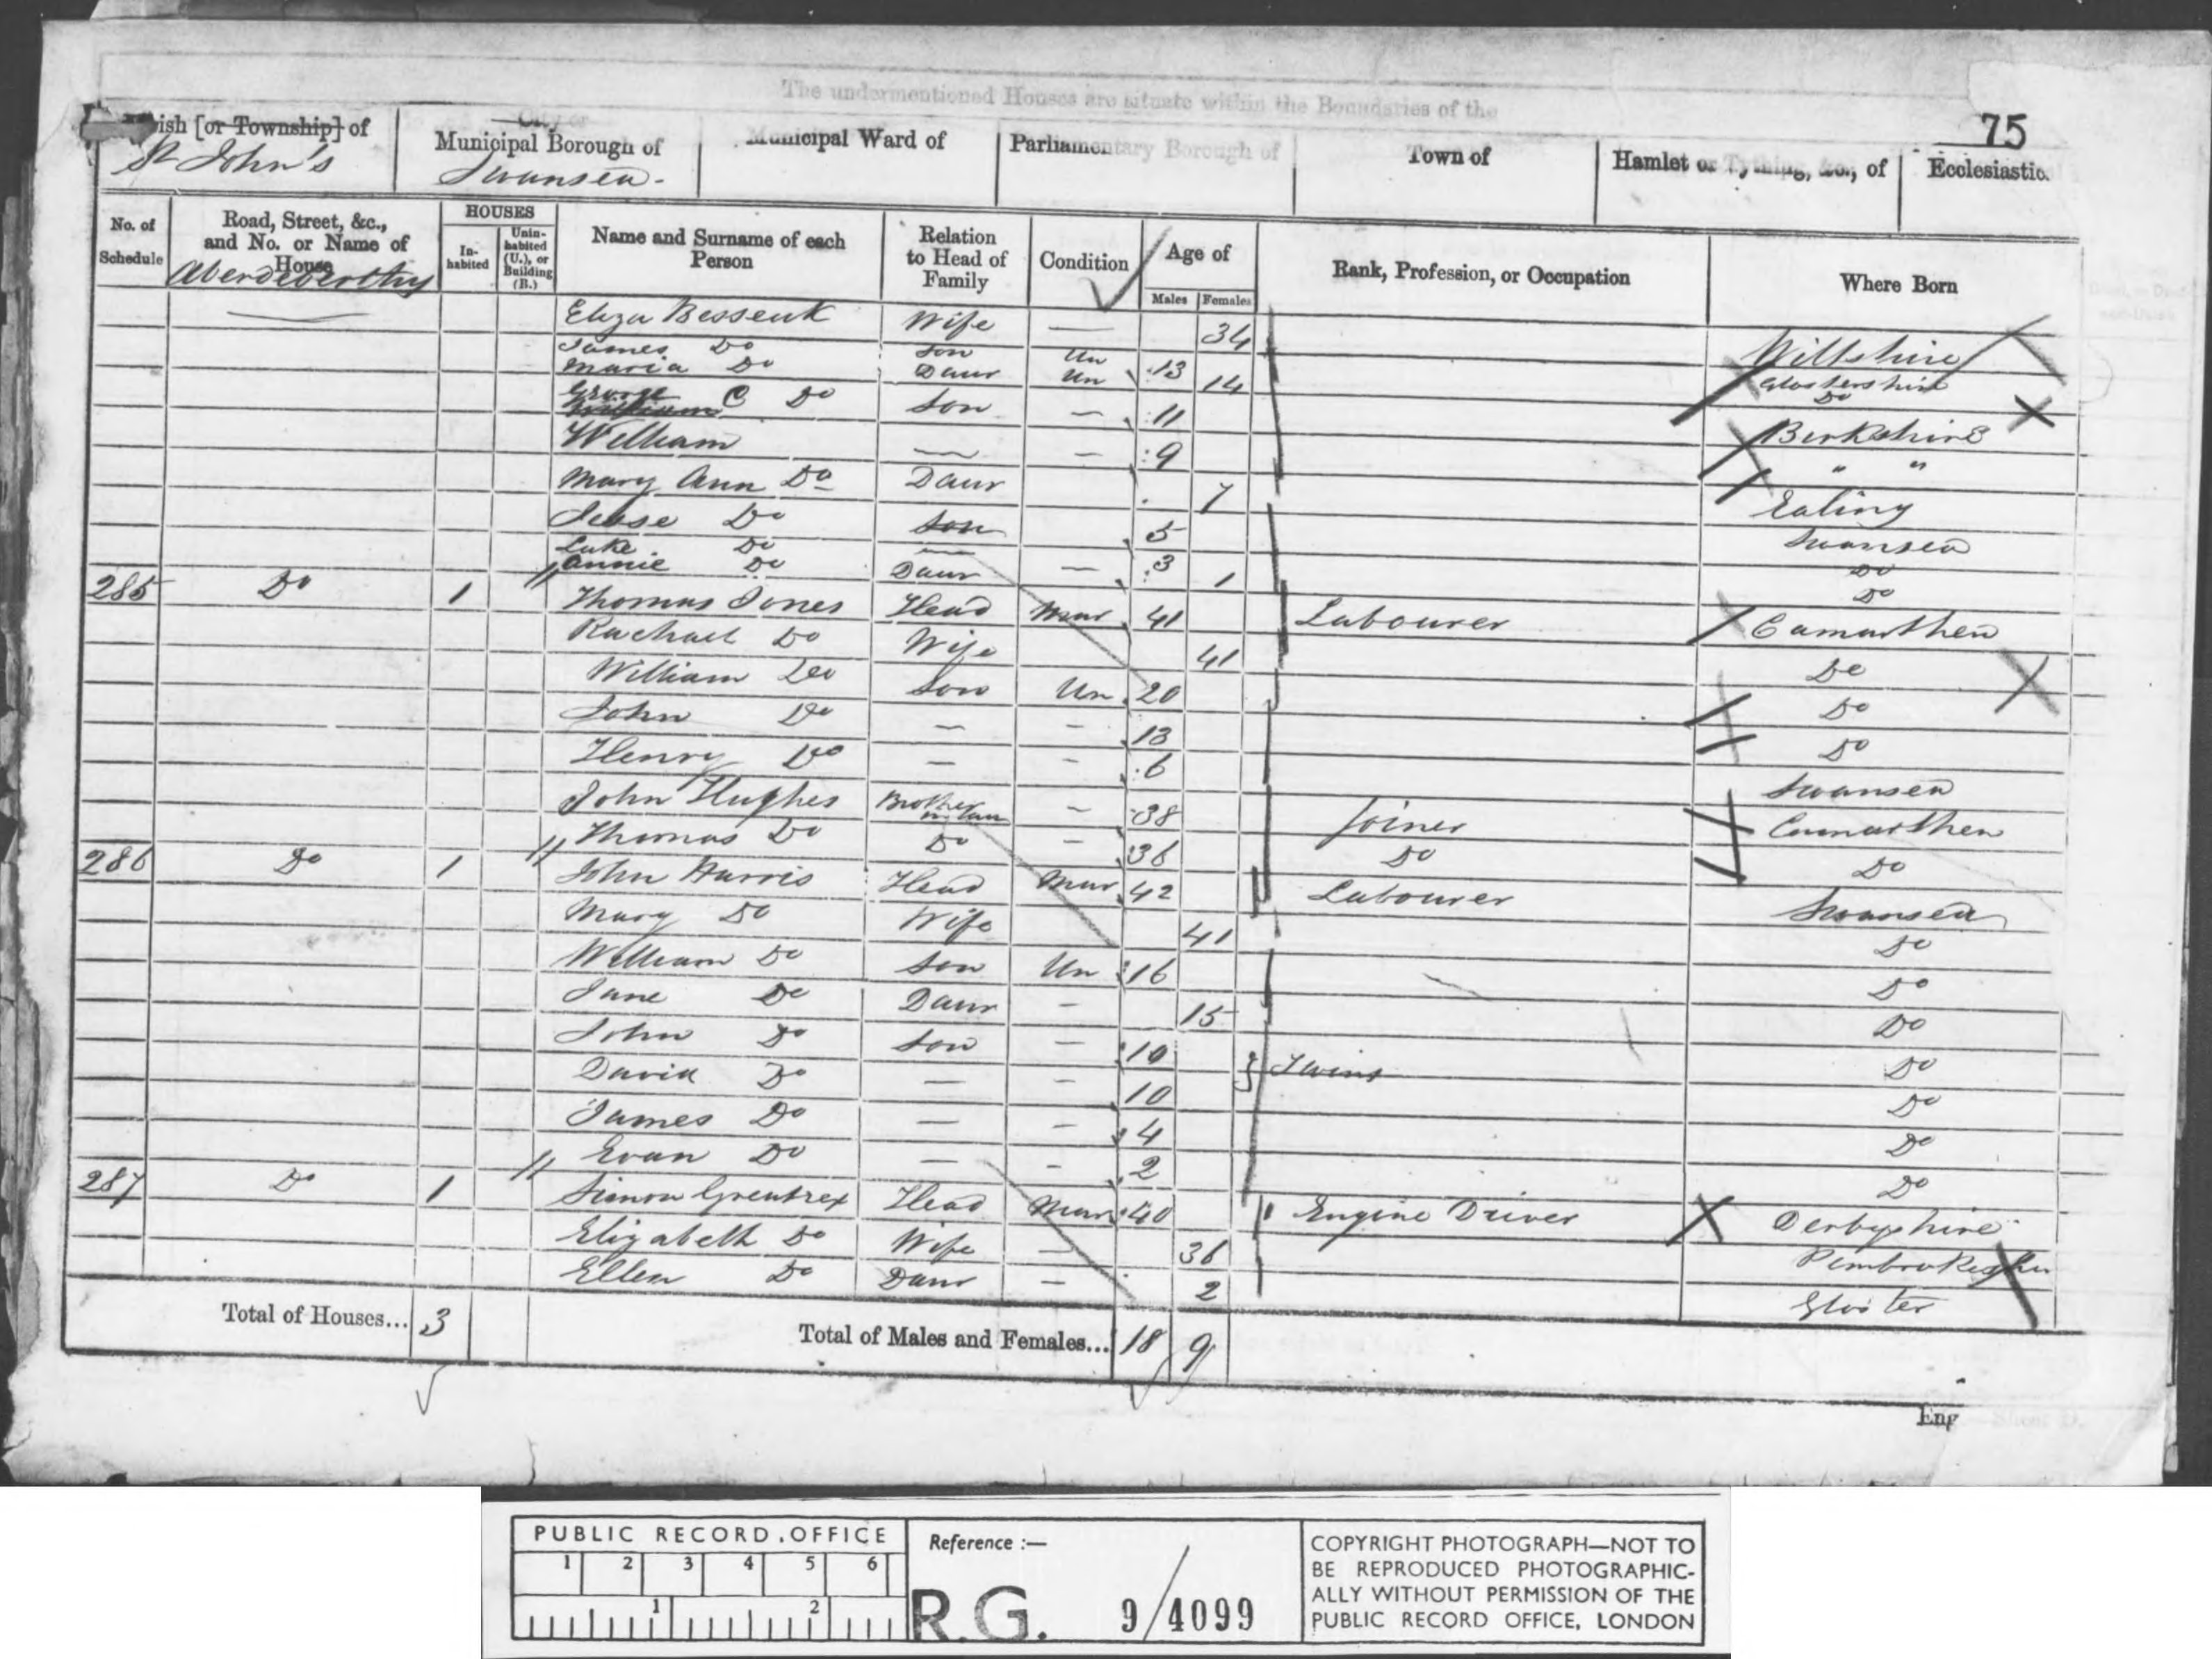 The undermentioned Houses are situate within the Boundaries of the
75
Parish [or Township] of
St John's
City or
Municipal Borough of
Swansea
Municipal Ward of
Parliamentary Borough of
Town of
Hamlet or Tything, &c., of
Ecclesiastic
No. of Schedule
Road, Street, &c., and No. or Name of House
HOUSES
In-habited
Unin-habited (U.), or Building (B.)
Name and Surname of each Person
Relation to Head of Family
Condition
Age of
Males Females
Rank, Profession, or Occupation
Where Born
Aberdeberthy
Eliza Wife — 34 Wiltshire
James Do Son Un 13 Glostershire
Maria Do Daur Un 14 Do
George William C Do Son — 11 Berkshire
William — — 9 " "
Mary Ann Do Daur 7 Ealing
Jesse Do Son 5 Swansea
Luke Do — — 3 Do
Annie Do Daur 1 Do
285 Do 1 Thomas Jones Head Mar 41 Labourer Camarthen
Rachael Do Wife 41 Do
William Do Son Un 20 Do
John Do — — 13 Do
Henry Do — — 6 Swansea
John Hughes Brother in law — 38 Joiner Camarthen
Thomas Do Do — 36 Do Do
286 Do 1 John Harris Head Mar 42 Labourer Swansea
Mary Do Wife 41 Do
William Do Son Un 16 Do
Jane Do Daur — 15 Do
John Do Son — 10 } Twins Do
David Do — — 10 Do
James Do — — 4 Do
Evan Do — — 2 Do
287 Do 1 Simon Greatrex Head Mar 40 Engine Driver Derbyshire
Elizabeth Do Wife — 36 Pembrokeshire
Ellen Do Daur — 2 Gloster
Total of Houses... 3
Total of Males and Females... 18 9
Eng.—Sheet D.
PUBLIC RECORD OFFICE
1 2 3 4 5 6
1 2
Reference :—
R.G. 9/4099
COPYRIGHT PHOTOGRAPH—NOT TO
BE REPRODUCED PHOTOGRAPHIC-
ALLY WITHOUT PERMISSION OF THE
PUBLIC RECORD OFFICE, LONDON